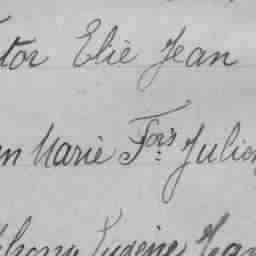 tor Elie Jean
n Marie Fois Julien
Eugène